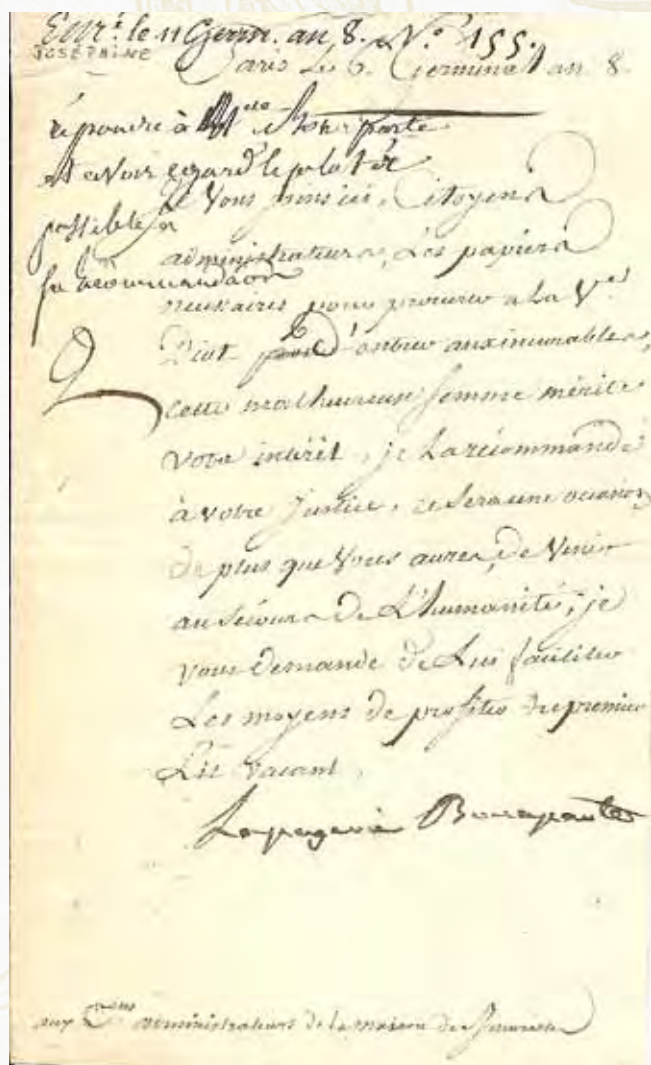 Enr.é le 11 Germ. an 8. N.º 155.
JOSÉPHINE
Paris Le 6. Germinal an 8.
répondre à Bonaparte
et avoir égard le plutôt
possible a
sa recommandaon
Je Vous Citoyens
administrateurs, Les papiers
necessaires pour procurer a La V.e
Diot d'entrer aux incurables,
cette malheureuse femme mérite
votre intérêt, je La récommande
à votre justice, ce sera une occasion
de plus que Vous aurez, de Venir
au Sécours de L'humanité; je
vous demande de Lui faciliter
Les moyens de profiter du premier
Lit vacant.
Lapagerie Bonaparte
aux C.ens administrateurs de la maison des